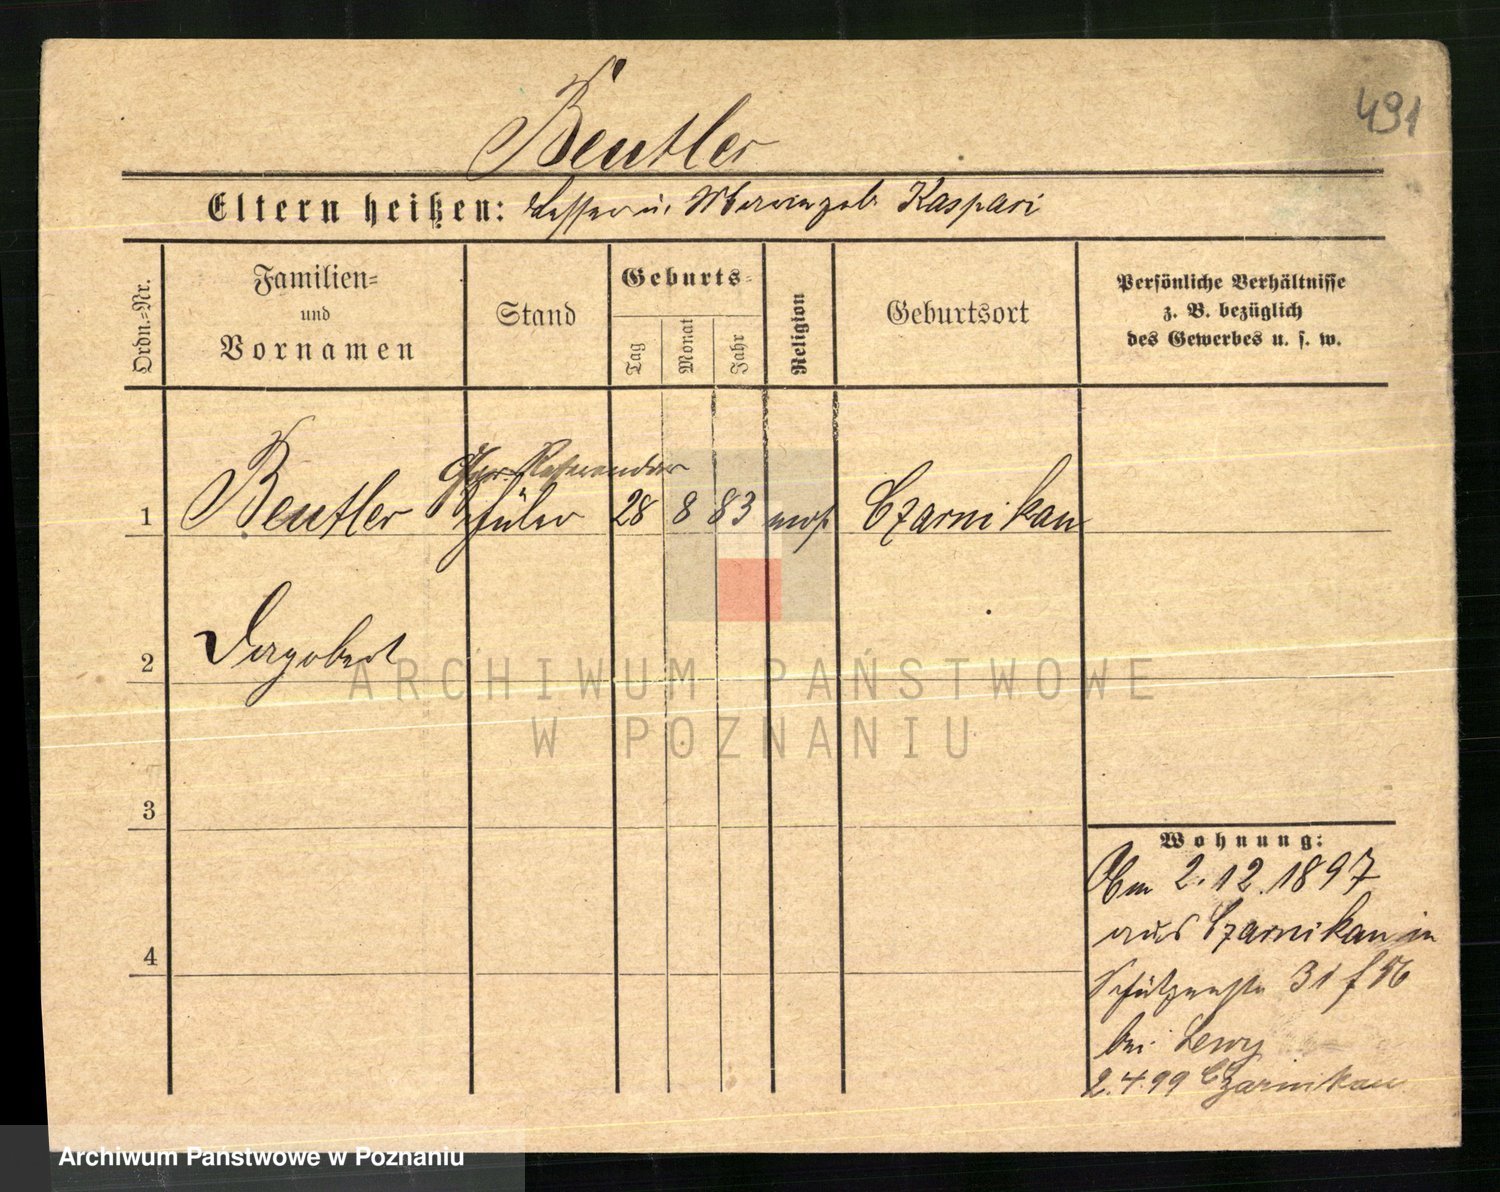 491
Beutler
Eltern heißen: Lesser u. Marie geb. Kaspari
Ordn.=Nr.
Familien=
und
Vornamen
Stand
Geburts=
Tag
Monat
Jahr
Religion
Geburtsort
Persönliche Verhältnisse
z. B. bezüglich
des Gewerbes u. s. w.
Referendar
1 Beutler Schüler 28 8 83 mos. Czarnikau
2 Dagobert
ARCHIWUM PAŃSTWOWE
W POZNANIU
3
4
Wohnung:
2.12.1897
aus Czarnikau in
Schützenstr 31
bei Lewy
2.4.99 Czarnikau
Archiwum Państwowe w Poznaniu